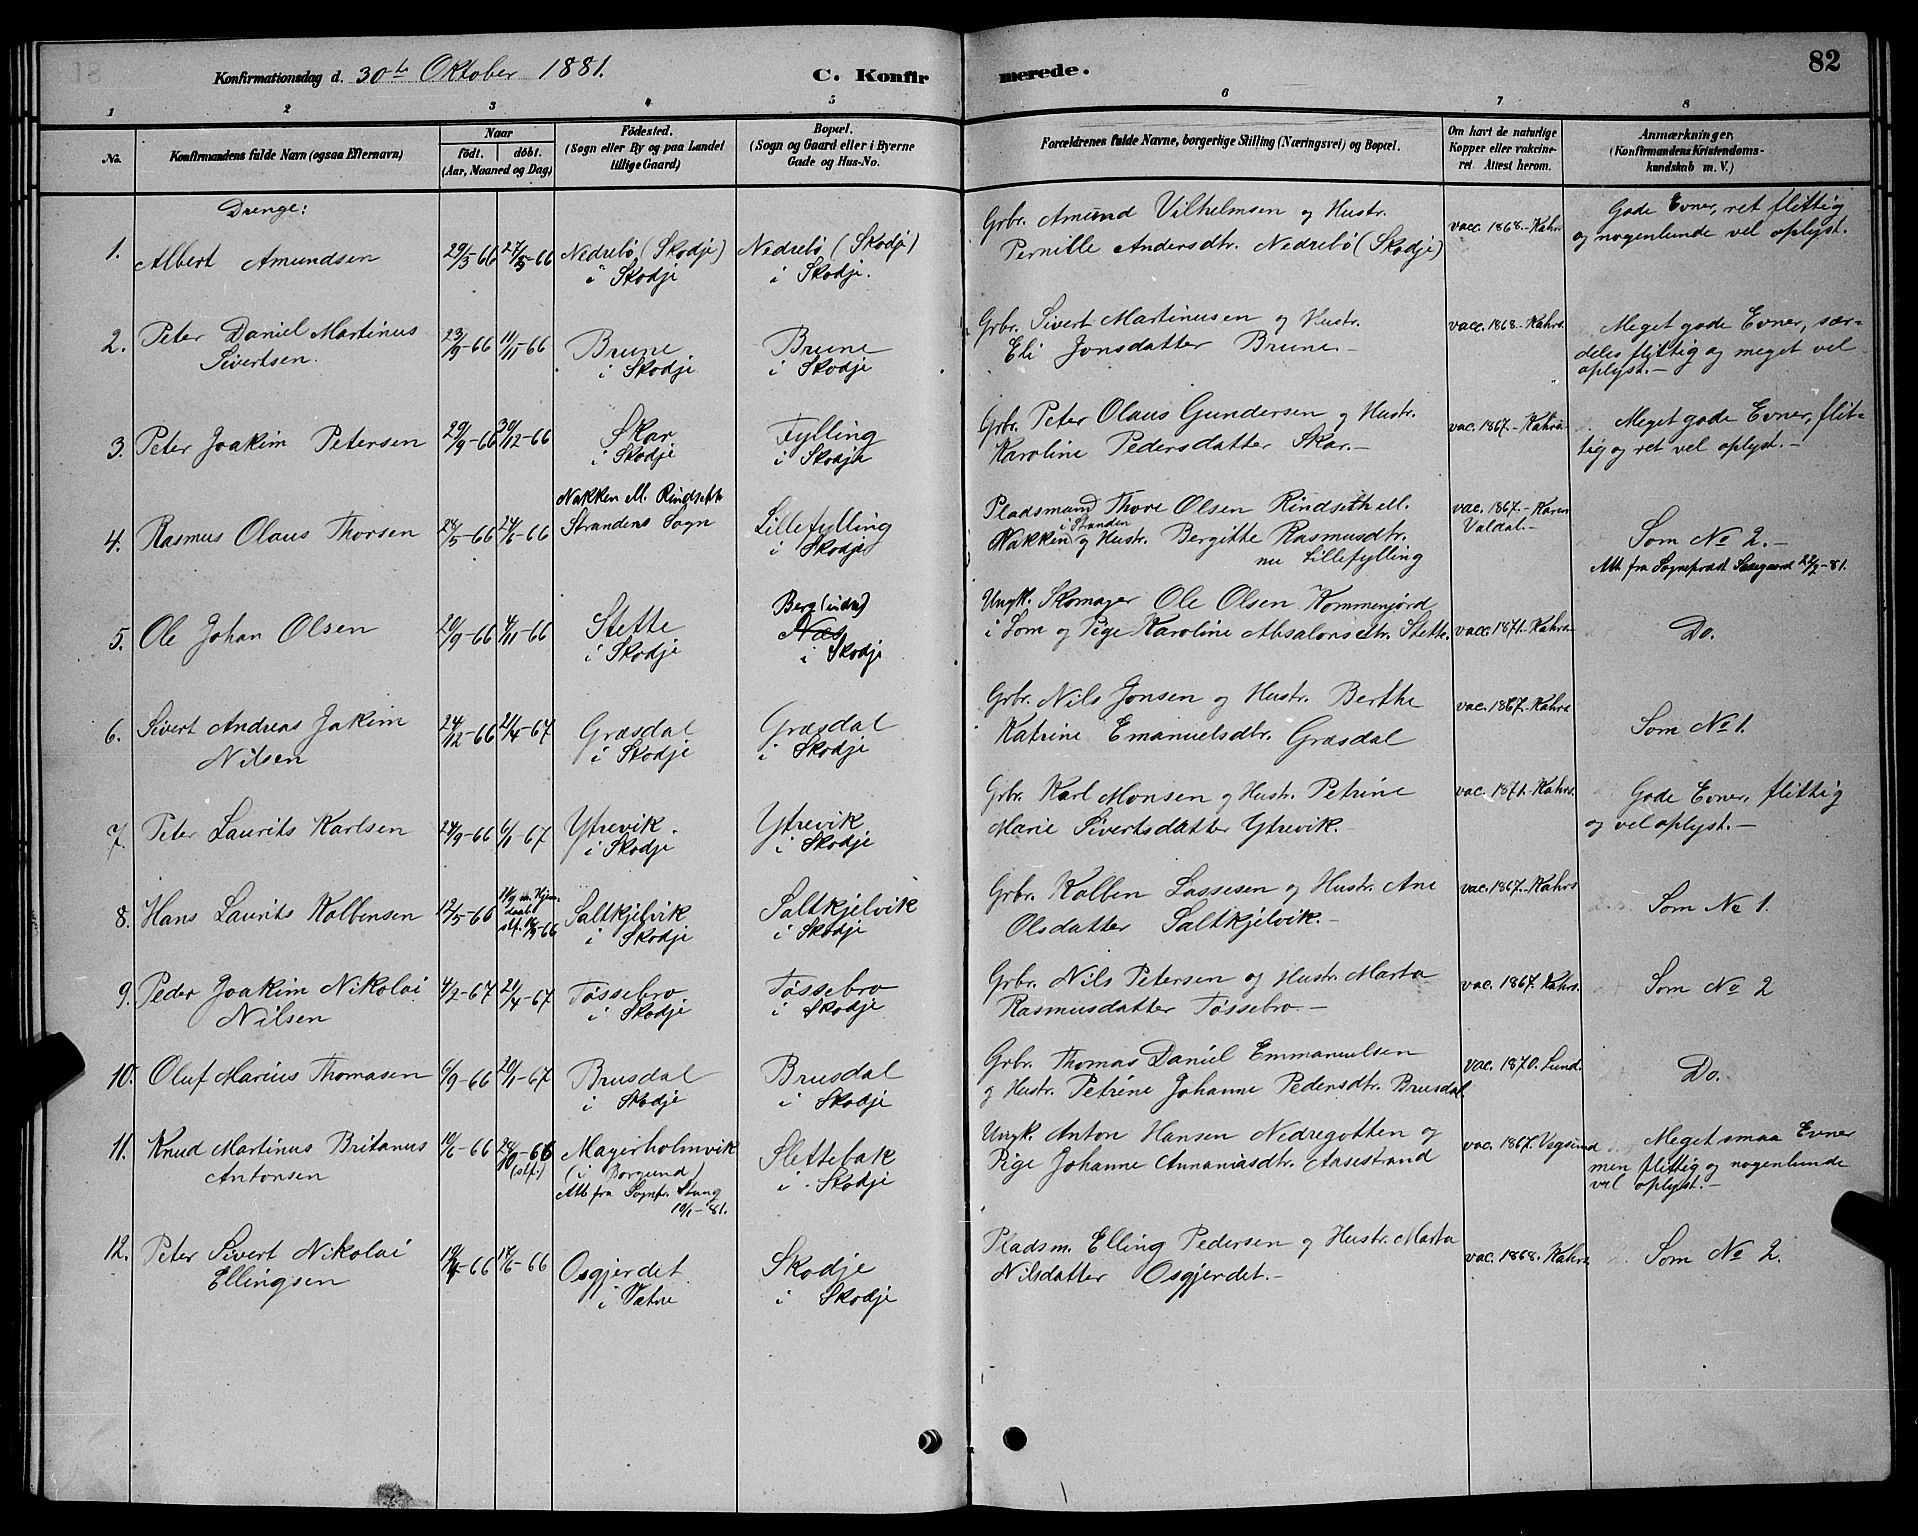 Konfirmationsdag d. 30te Oktober 1881.
C. Konfirmerede.
82
1 2 3 4 5 6 7 8
No.
Konfirmandens fulde Navn (ogsaa Efternavn)
Naar
födt. döbt.
(Aar, Maaned og Dag)
Födested.
(Sogn eller By og paa Landet
tillige Gaard)
Bopæl.
(Sogn og Gaard eller i Byerne
Gade og Hus-No.
Forældrenes fulde Navne, borgerlige Stilling (Næringsvei) og Bopæl.
Om havt de naturlige
Kopper eller vakcine-
ret. Attest herom.
Anmærkninger.
(Konfirmandens Kristendoms-
kundskab m. V.)
Drenge:
1. Albert Amundsen
29/3-66 27/5-66
Nedrebö (Skodje)
i Skodje
Nedrebö (Skodje)
i Skodje.
Grbr. Amund Vilhelmsen og Hustr.
Pernille Andersdtr. Nedrebö (Skodje)
vacc. 1868.-Kahrs
Gode Evner, ret flittig
og nogenlunde vel oplyst.
2. Peter Daniel Martinus
Sivertsen.
23/9-66 11/11-66
Brune
i Skodje
Brune
i Skodje
Grbr. Sivert Martinusen og Hustr.
Eli Jonsdatter Brune.-
vacc. 1868.-Kahrs.
Meget gode Evner, sær-
deles flittig og meget vel
oplyst.-
3. Peter Joakim Petersen
29/9-66 30/12-66
Skar
i Skodje
Fylling
i Skodje
Grbr. Peter Olaus Gundersen og Hustr.
Karoline Pedersdatter Skar.-
vac. 1867.-Kahrs
Meget gode Evner, flit-
tig og ret vel oplyst.-
4. Rasmus Olaus Thorsen
28/5-66 24/6-66
Nakken M. Rindseth
Strandens Sogn
Lillefylling
i Skodje
Pladsmand Thore Olsen Rindseth ell.
Nakken i Stranden og Hustr. Bergitte Rasmusdtr.
nu Lillefylling
vac. 1867.- Karen
Valdal.-
Som No 2.-
Att. fra Sogneprest Saxgaard 22/2-81.
5. Ole Johan Olsen
20/9-66 4/11-66
Stette
i Skodje
Berg (indre)
Næs
i Skodje
Ungk. Skomager Ole Olsen Kommenjord
i Lom og Pige Karoline Absalonsdtr. Stette.
vacc. 1871.-Kahrs.-
Do.
6. Sivert Andreas Jakim
Nilsen
24/12-66 21/4-67
Græsdal
i Skodje
Græsdal
i Skodje
Grbr. Nils Jonsen og Hustr. Berthe
Katrine Emanuelsdtr. Græsdal
vac. 1867.-Kahrs
Som No 1.
7. Peter Laurits Karlsen
24/9-66 6/1-67
Ytrevik.
i Skodje
Ytrevik
i Skodje
Grbr. Karl Monsen og Hustr. Petrine
Marie Sivertsdatter Ytrevik.-
vac. 1871.-Kahrs.
Gode Evner, flittig
og vel oplyst.-
8. Hans Laurits Kolbensen
12/5-66
Saltkjelvik
i Skodje
Saltkjelvik
i Skodje
Grbr. Kolben Lassesen og Hustr. Ane
Olsdatter Saltkjelvik.-
vac. 1867.-Kahrs
Som No 1.
9. Peder Joakim Nikolai
Nilsen
4/2-67 21/4-67
Tössebro
i Skodje
Tössebro
i Skodje
Grbr. Nils Petersen og Hustr. Marta
Rasmusdatter Tössebro.-
vac. 1867. Kahrs.
Som No 2
10. Oluf Marius Thomasen
6/9-66 20/1-67
Brusdal
i Skodje
Brusdal
i Skodje
Grbr. Thomas Daniel Emmanuelsen
og Hustr. Petrine Johanne Pedersdtr. Brusdal
vac. 1870. Lund.
Do.
11. Knud Martinus Britanus
Antonsen
10/6-66 28/10-66
(stf.)
Mayerholmvik
(i Borgund)
Att. fra Sognepr. Stang
10/1-81.
Slettebak
i Skodje
Ungk. Anton Hansen Nedregotten og
Pige Johanne Annaniasdtr. Aasestrand
vac. 1867. Vegsund
Meget smaa Evner
men flittig og nogenlunde
vel oplyst.-
12. Peter Sivert Nikolai
Ellingsen
19/4-66 17/6-66
Osgjerdet
i Vatne
Skodje
i Skodje
Pladsm. Elling Pedersen og Hustr. Marta
Nilsdatter Osgjerdet.-
vac. 1868. Kahrs
Som No 2.